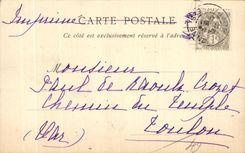 Imprimé
CARTE POSTALE
Ce côté est exclusivement réservé à l'adresse
Monsieur
Paul de Raoulx Crozet
Chemin du Temple
(Var) Toulon